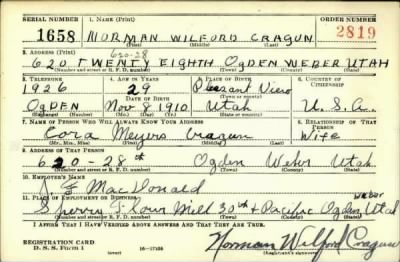 SERIAL NUMBER 1. NAME (Print) ORDER NUMBER
1658 NORMAN WILFORD CRAGUN 2819
(First) (Middle) (Last)
2. ADDRESS (Print) 620-28
620 TWENTY EIGHTH OGDEN WEBER UTAH
(Number and street or R. F. D. number) (Town) (County) (State)
3. TELEPHONE 4. AGE IN YEARS 5. PLACE OF BIRTH 6. COUNTRY OF CITIZENSHIP
1926 29 Pleasant View
DATE OF BIRTH (Town or county)
OGDEN Nov. 8 1910 Utah U.S.A.
(Exchange) (Number) (Mo.) (Day) (Yr.) (State or country)
7. NAME OF PERSON WHO WILL ALWAYS KNOW YOUR ADDRESS 8. RELATIONSHIP OF THAT PERSON
Cora Meyers Cragun Wife
(Mr., Mrs., Miss) (First) (Middle) (Last)
9. ADDRESS OF THAT PERSON
620-28th Ogden Weber Utah
(Number and street or R. F. D. number) (Town) (County) (State)
10. EMPLOYER'S NAME
MacDonald
11. PLACE OF EMPLOYMENT OR BUSINESS Weber
Sperry Flour Mill 30th & Pacific Ogden Utah
(Number and street or R. F. D. number) (Town) (County) (State)
I AFFIRM THAT I HAVE VERIFIED ABOVE ANSWERS AND THAT THEY ARE TRUE.
REGISTRATION CARD
D. S. S. Form 1 16-17105 Norman Wilford Cragun
(Registrant's signature)